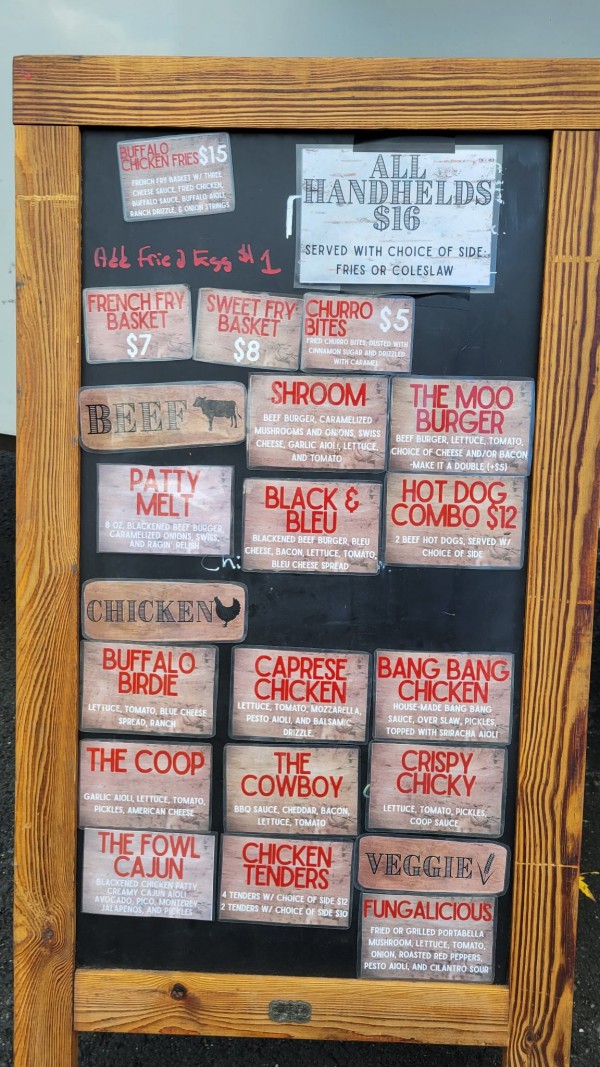 BUFFALO
CHICKEN FRIES $15
FRENCH FRY BASKET W/ THREE
CHEESE SAUCE, FRIED CHICKEN,
BUFFALO SAUCE, BUFFALO AIOLI,
RANCH DRIZZLE, & ONION STRINGS
ALL
HANDHELDS
$16
SERVED WITH CHOICE OF SIDE:
FRIES OR COLESLAW
Add Fried Egg $1
FRENCH FRY
BASKET
$7
SWEET FRY
BASKET
$8
CHURRO
BITES $5
FRIED CHURRO BITES, DUSTED WITH
CINNAMON SUGAR AND DRIZZLED
WITH CARAMEL
BEEF
SHROOM
BEEF BURGER, CARAMELIZED
MUSHROOMS AND ONIONS, SWISS
CHEESE, GARLIC AIOLI, LETTUCE,
AND TOMATO
THE MOO
BURGER
BEEF BURGER, LETTUCE, TOMATO,
CHOICE OF CHEESE AND/OR BACON
-MAKE IT A DOUBLE (+$5)
PATTY
MELT
8 OZ. BLACKENED BEEF BURGER,
CARAMELIZED ONIONS, SWISS,
AND RAGIN' RELISH
BLACK &
BLEU
BLACKENED BEEF BURGER, BLEU
CHEESE, BACON, LETTUCE, TOMATO,
BLEU CHEESE SPREAD
HOT DOG
COMBO $12
2 BEEF HOT DOGS, SERVED W/
CHOICE OF SIDE
CHICKEN
BUFFALO
BIRDIE
LETTUCE, TOMATO, BLUE CHEESE
SPREAD, RANCH
CAPRESE
CHICKEN
LETTUCE, TOMATO, MOZZARELLA,
PESTO AIOLI, AND BALSAMIC
DRIZZLE
BANG BANG
CHICKEN
HOUSE-MADE BANG BANG
SAUCE, OVER SLAW, PICKLES,
TOPPED WITH SRIRACHA AIOLI
THE COOP
GARLIC AIOLI, LETTUCE, TOMATO,
PICKLES, AMERICAN CHEESE
THE
COWBOY
BBQ SAUCE, CHEDDAR, BACON,
LETTUCE, TOMATO
CRISPY
CHICKY
LETTUCE, TOMATO, PICKLES,
COOP SAUCE
THE FOWL
CAJUN
BLACKENED CHICKEN PATTY,
CREAMY CAJUN AIOLI,
AVOCADO, PICO, MONTEREY,
JALAPENOS, AND PICKLES
CHICKEN
TENDERS
4 TENDERS W/ CHOICE OF SIDE $12
2 TENDERS W/ CHOICE OF SIDE $10
VEGGIE
FUNGALICIOUS
FRIED OR GRILLED PORTABELLA
MUSHROOM, LETTUCE, TOMATO,
ONION, ROASTED RED PEPPERS,
PESTO AIOLI, AND CILANTRO SOUR